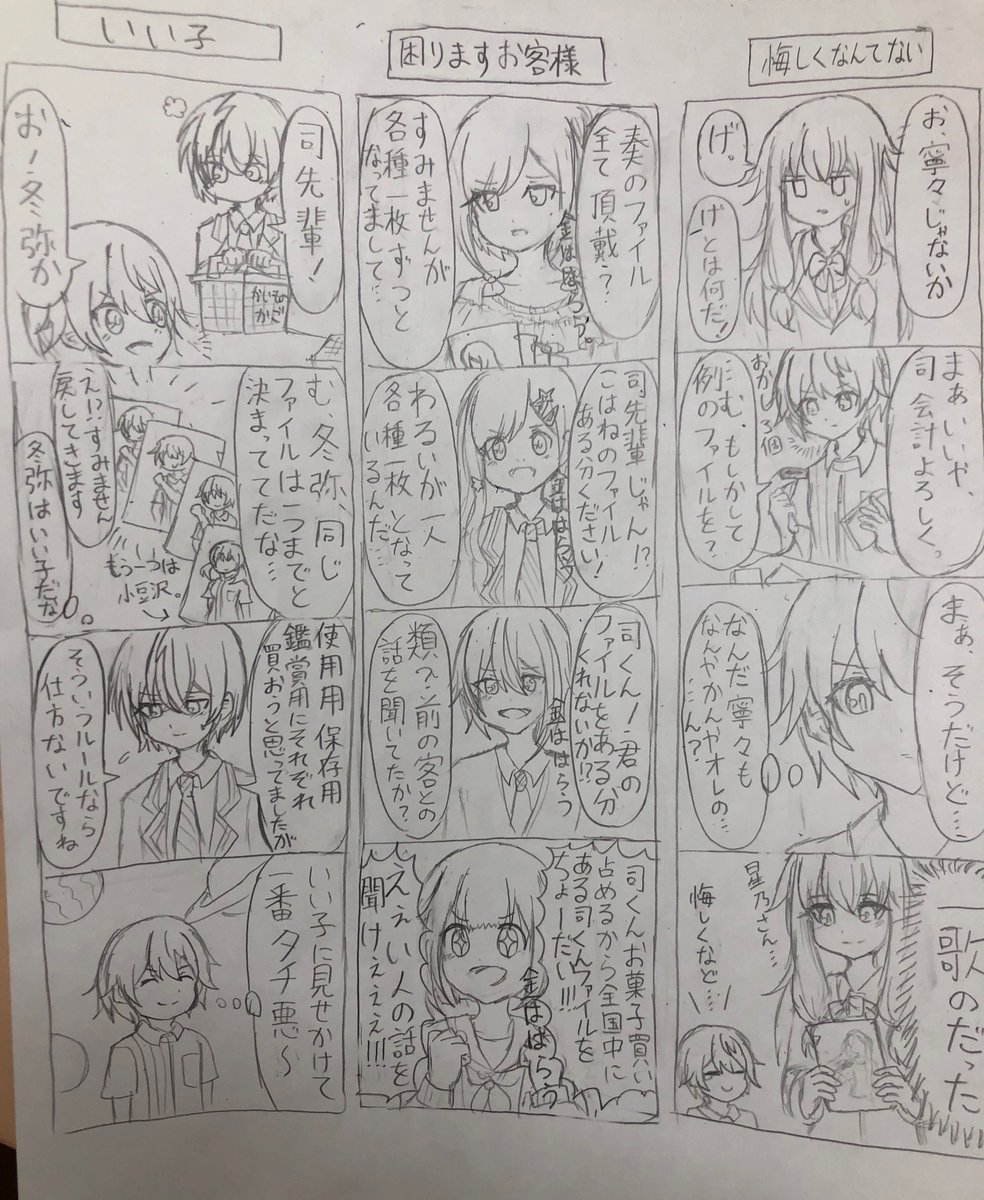 悔しくなんてない
お、寧々じゃないか
げ。
げとは何だ!
まぁいいや、
司 会計よろしくっ
おかし3個
…む、もしかして
例のファイルを?
まぁ、そうだけど…
なんだ寧々も
なんやかんやオレの
…ん?
一歌のだった
星乃さん…
悔しくなど…!
困りますお客様
奏のファイル
全て頂戴?
金ははらう。
すみませんが
各種一枚ずつと
なってまして…
司先輩じゃん!?
こはねのファイル
ある分ください!
金ははらう
わるいが一人
各種一枚となって
いるんだ…
司くん!君の
ファイルをある分
くれないか!?
金ははらう
類?前の客との
話を聞いてたか?
司くんお菓子買い
占めるから全国中に
ある司くんファイルを
ちょーだい!!!
金ははらう
ええい人の話を
聞けぇぇぇ!!!
いい子
司先輩!
かいもの
かご
お、冬弥か
む、冬弥、同じ
ファイルは一つまでと
決まっててだな…
もう一つは
小豆沢。
え!?すみません
戻してきます
冬弥はいい子だな
使用用 保存用
鑑賞用にそれぞれ
買おうと思ってましたが
そういうルールなら
仕方ないですね
いい子に見せかけて
一番タチ悪〜